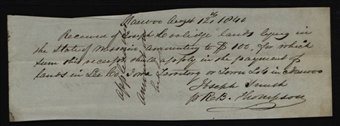 Nauvoo Augst 12th 1840
Received of Joseph Coolidge lands lying in
the State of Missouri amounting to $ 100, for which
sum this receipt shall apply in the payment of
lands in Lee Co. Iowa Territory or Town Lots in Nauvoo
Joseph Smith
R. B. Thompson